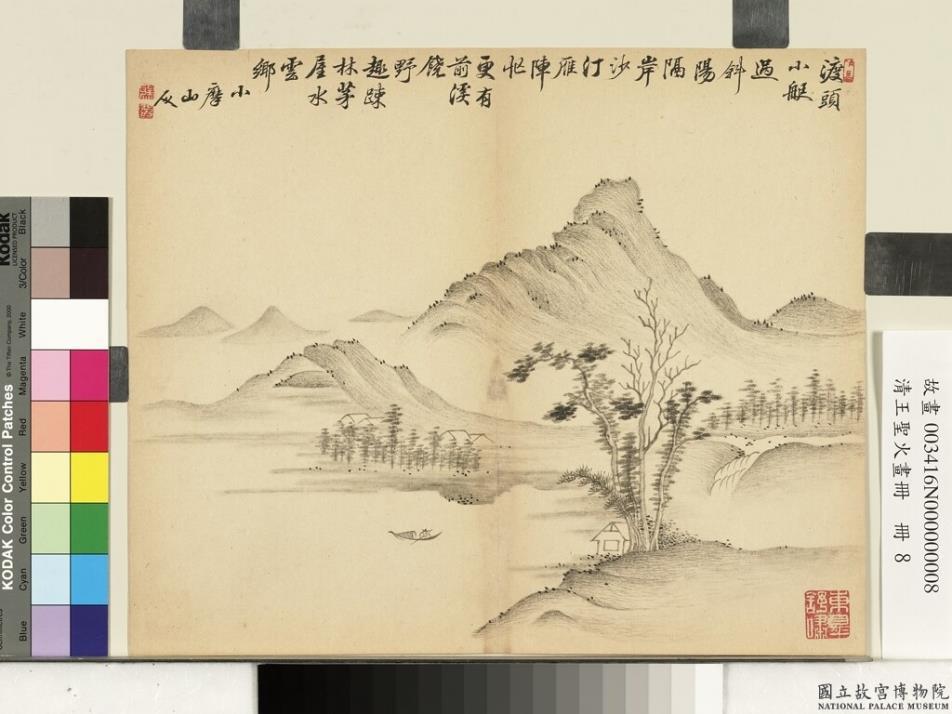 渡頭
小艇
過
斜
陽
隔
岸
沙
汀
雁
陣
忙
更有
前溪
饒
野
趣踈
林茅
屋水
雲
鄉
小
摩
山
人
東皋
舒嘯
故畫 003416N000000008
清王聖火畫冊 冊 8
KODAK Color Control Patches
© The Tiffen Company, 2000
Kodak
LICENSED PRODUCT
Blue
Cyan
Green
Yellow
Red
Magenta
White
3/Color
Black
國立故宮博物院
NATIONAL PALACE MUSEUM